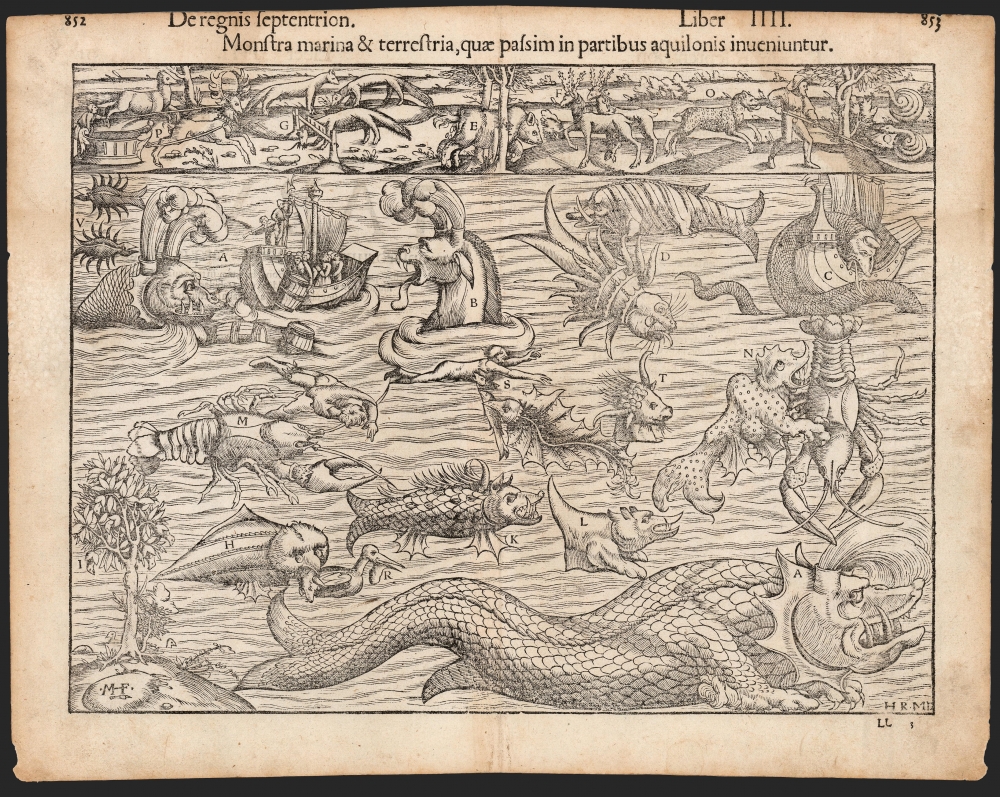 852 De regnis ſeptentrion. Liber IIII. 853
Monſtra marina & terreſtria, quæ paſsim in partibus aquilonis inueniuntur.
P
G
E
F
O
V
A
B
D
C
S
T
N
M
K
L
H
R
I
A
·MHF·
LL 3